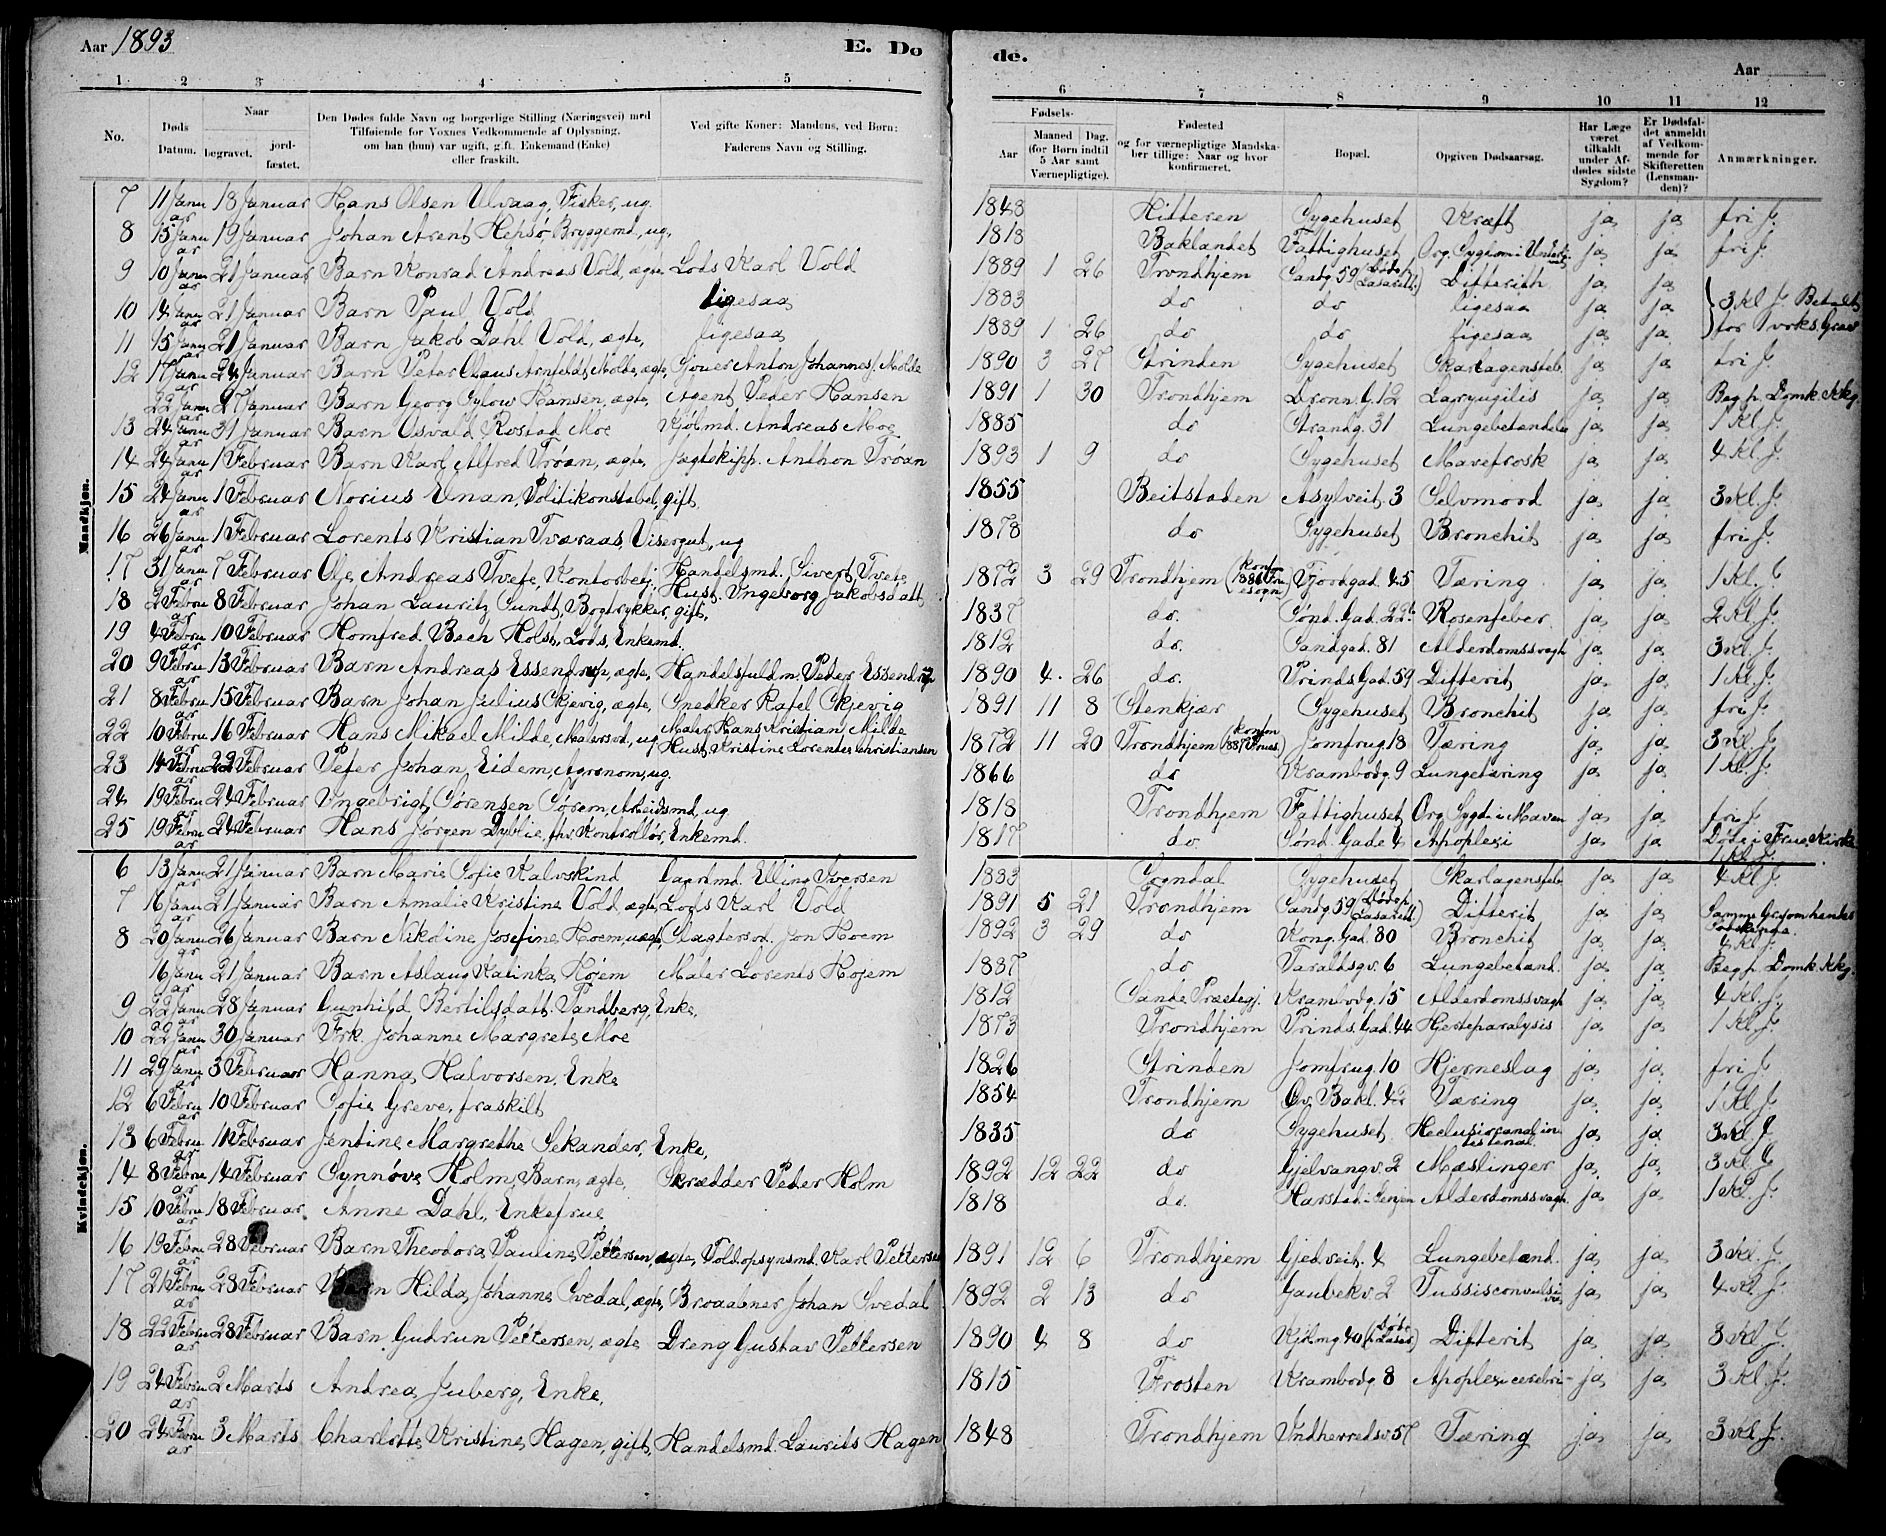 Aar 1893
E. Do
de.
Aar
1 2 3 4 5 6 7 8 9 10 11 12
No.
Døds Datum.
Naar
begravet.
jordfæstet.
Den Dødes fulde Navn og borgerlige Stilling (Næringsvei) med
Tilføiende for Voxnes Vedkommende af Oplysning,
om han (hun) var ugift, gift, Enkemand (Enke)
eller fraskilt.
Ved gifte Koner: Mandens, ved Børn:
Faderens Navn og Stilling.
Fødsels-
Aar
Maaned Dag.
(for Børn indtil
5 Aar samt
Værnepligtige).
Fødested
og for værnepligtige Mandskaber tillige: Naar og hvor
konfirmeret.
Bopæl.
Opgiven Dødsaarsag.
Har Læge
været
tilkaldt
under Afdødes sidste
Sygdom?
Er Dødsfaldet anmeldt
af Vedkommende for
Skifteretten
(Lensmanden)?
Anmærkninger.
Mandkjøn.
7 11 Januar 18 Januar Hans Olsen Ulvaag, Fisker, ug. 1848 Hitteren Sygehuset Kræft ja ja fri J.
8 15 Januar 19 Januar Johan Arent Hepsø, Bryggemd, ug. 1818 Baklandet Fattighuset Org. Sygdom i ja ja fri J.
9 10 Januar 21 Januar Barn Konrad Andreas Vold, ægte, Lods Karl Vold 1889 1 26 Trondhjem Sandg. 59 (Døde p. Lasarett.) Difterith ja ja
10 14 Januar 21 Januar Barn Paul Vold ligesaa 1883 do do ligesaa ja ja 3 Kl J. Betalt
11 15 Januar 21 Januar Barn Jakob Dahl Vold, ægte, ligesaa 1889 1 26 do do ligesaa ja ja for 1 voks. Grav
12 17 Januar 24 Januar Barn Peter Olaus Arnfeldt Molde, ægte, Anton Johannes J. Molde 1890 3 27 Strinden Sygehuset Skarlagensfeb. ja ja fri J.
22 Januar 27 Januar Barn Georg Sylow Hansen, ægte, Agent Peder Hansen 1891 1 30 Trondhjem Dronn. G. 12 Laryngilis ja ja Beg p. Domk. Kkg.
13 24 Januar 31 Januar Barn Osvald Rostad Moe Kjølmd. Andreas Moe 1885 do Strandg. 31 Lungebetændelse ja ja 1 Kl J.
14 24 Januar 1 Februar Barn Karl Alfred Trøan, ægte, Jægtskipp. Anthon Trøan 1893 1 9 do Sygehuset Mavefrosk ja ja 4 Kl J.
15 24 Januar 1 Februar Norius Elnan, Politikonstabel, gift. 1855 Beitstaden Asylveit. 3 Selvmord ja ja 3 Kl. J.
16 26 Januar 1 Februar Lorents Kristian Tværaas, Visergut, ug 1878 do Sygehuset Bronchit ja ja fri J.
17 31 Januar 7 Februar Ole Andreas Tvete, Kontorbetj. Handelsmd. Sivert Tvete Hust. Ingeborg Jakobsdatt 1872 3 29 Trondhjem (Konf. 1886 Fruesogn) Fjordgad. 45 Tæring ja ja 1 Kl. J
18 2 Februar 8 Februar Johan Lauritz Sundt, Bogtrykker, gift. 1837 do. Sønd. Gad. 22b Rosenfeber ja ja 2 Kl J.
19 4 Februar 10 Februar Homfred Bech Holst, Lods, Enkemd. 1812 do. Sandgad. 81 Alderdomssvagh ja ja 3 Kl J.
20 9 Februar 13 Februar Barn Andreas Essendrop, ægte, Handelsfuldm. Peder Essendrop 1890 4. 26 do. Prinds Gad. 59 Difterit ja ja 1 Kl J.
21 8 Februar 15 Februar Barn Johan Julius Skjevig, ægte, Snedker Rafel Skjevig 1891 11 8 Stenkjær Sygehuset Bronchit ja ja fri J.
22 10 Februar 16 Februar Hans Mikael Milde, Malersvd, ug Maler Hans Kristian Milde Hust. Kristine Lorentse Christiansen 1872 11 20 Trondhjem (Konfm 1887 Frues.) Jomfrug. 18 Tæring ja ja 3 Kl. J.
23 14 Februar 22 Februar Peter Johan Eidem, Agronom, ug. 1866 do Krambodg. 9 Lungetæring ja ja 1 Kl. J.
24 19 Februar 24 Februar Ingebrigt Sørensen Sørem, Arbeidsmd, ug 1818 Trondhjem Fattighuset Org. Sygd. i Maven ja ja fri J.
25 19 Februar 24 Februar Hans Jørgen Dyblie, fhv. Kontrollør, Enkemd. 1817 do. Sønd. Gade 4 Apoplexi ja ja Døde i Frue Kirke 1 Kl J.
Kvindekjøn.
6 13 Januar 21 Januar Barn Marie Sofie Kalvskind Gaardmd. Elling Iversen 1883 Sygehuset Skarlagensfeb ja ja 4 Kl J.
7 16 Januar 21 Januar Barn Amalie Kristine Vold ægte, Lods Karl Vold 1891 5 21 Trondhjem Sandg. 59 (Døde p. Lasarett) Difterit ja ja Samme Grav som hendes Søskende.
8 20 Januar 26 Januar Barn Nikoline Josefine Hoem, uægt. Slagtersvd. Jon Hoem 1892 3 29 do Kong. Gad. 80 Bronchit ja ja 4 Kl J.
16 Januar 21 Januar Barn Aslaug Katinka Højem Maler Lorents Højem 1887 do Taraldsgv. 6 Lungebetænd. ja ja Beg p. Domk. Kkg.
9 22 Januar 28 Januar Gunhild Bertilsdatt. Sandberg, Enke, 1812 Sande Præstegj. Krambodg. 15 Alderdomssvagh ja ja 4 Kl. J.
10 22 Januar 30 Januar Frk. Johanne Margrete Moe 1873 Trondhjem Prinds. Gad. 44 Hjerteparalysis ja ja 1 Kl J.
11 29 Januar 3 Februar Hanna Halvorsen, Enke 1826 Strinden Jomfrug. 10 Hjerneslag ja ja fri J
12 6 Februar 10 Februar Sofie Greve, fraskilt 1854 Trondhjem Øv. Bakl. Tæring ja ja 1 Kl J.
13 6 Februar 11 Februar Jentine Margrethe Sekander, Enke, 1835 do Sygehuset ja ja 3 Kl J
14 8 Februar 14 Februar Synnøve Holm, Barn, ægte, Skrædder Peder Holm 1892 12 22 do Gjelvangv. 2 Mæslinger ja ja 3 Kl J
15 10 Februar 18 Februar. Anne Dahl, Enkefrue 1818 do. Harstad i Senjen Alderdomssvagh. ja ja 1 Kl. J.
16 19 Februar 28 Februar Barn Theodora Pauline Pettersen, ægte, Toldopsynsmd. Karl Pettersen 1891 12 6 Trondhjem Gjedveit. 4 Lungebetænd. ja ja 3 Kl. J.
17 21 Februar 28 Februar Barn Hilda Johanne Svedal, ægte, Johan Svedal 1892 2 13 do Gaubekv. 2 Tussis convulsiva ja ja 4 Kl J.
18 22 Februar 28 Februar Barn Gudrun Pettersen, ægte Dreng Gustav Pettersen 1890 4 8 do 40 (Døde p. Lasar.) Difterit ja ja 3 Kl. J.
19 24 Februar 2 Marts Andrea Juberg, Enke, 1815 Frosten Krambodg. 8 Apoplexi cerebri ja ja 3 Kl. J.
20 24 Februar 3 Marts Charlotte Kristine Hagen, gift, Handelsmd. Laurits Hagen 1848 Trondhjem Indherredsv. 57 Tæring ja ja 3 Kl. J.